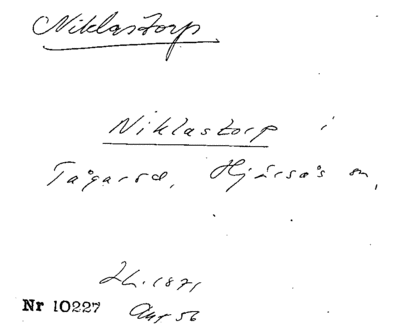 Niklastorp
Niklastorp i
Tågarod, Hjärsås sn,
Jh. 1871
Nr 10227 Aug 56